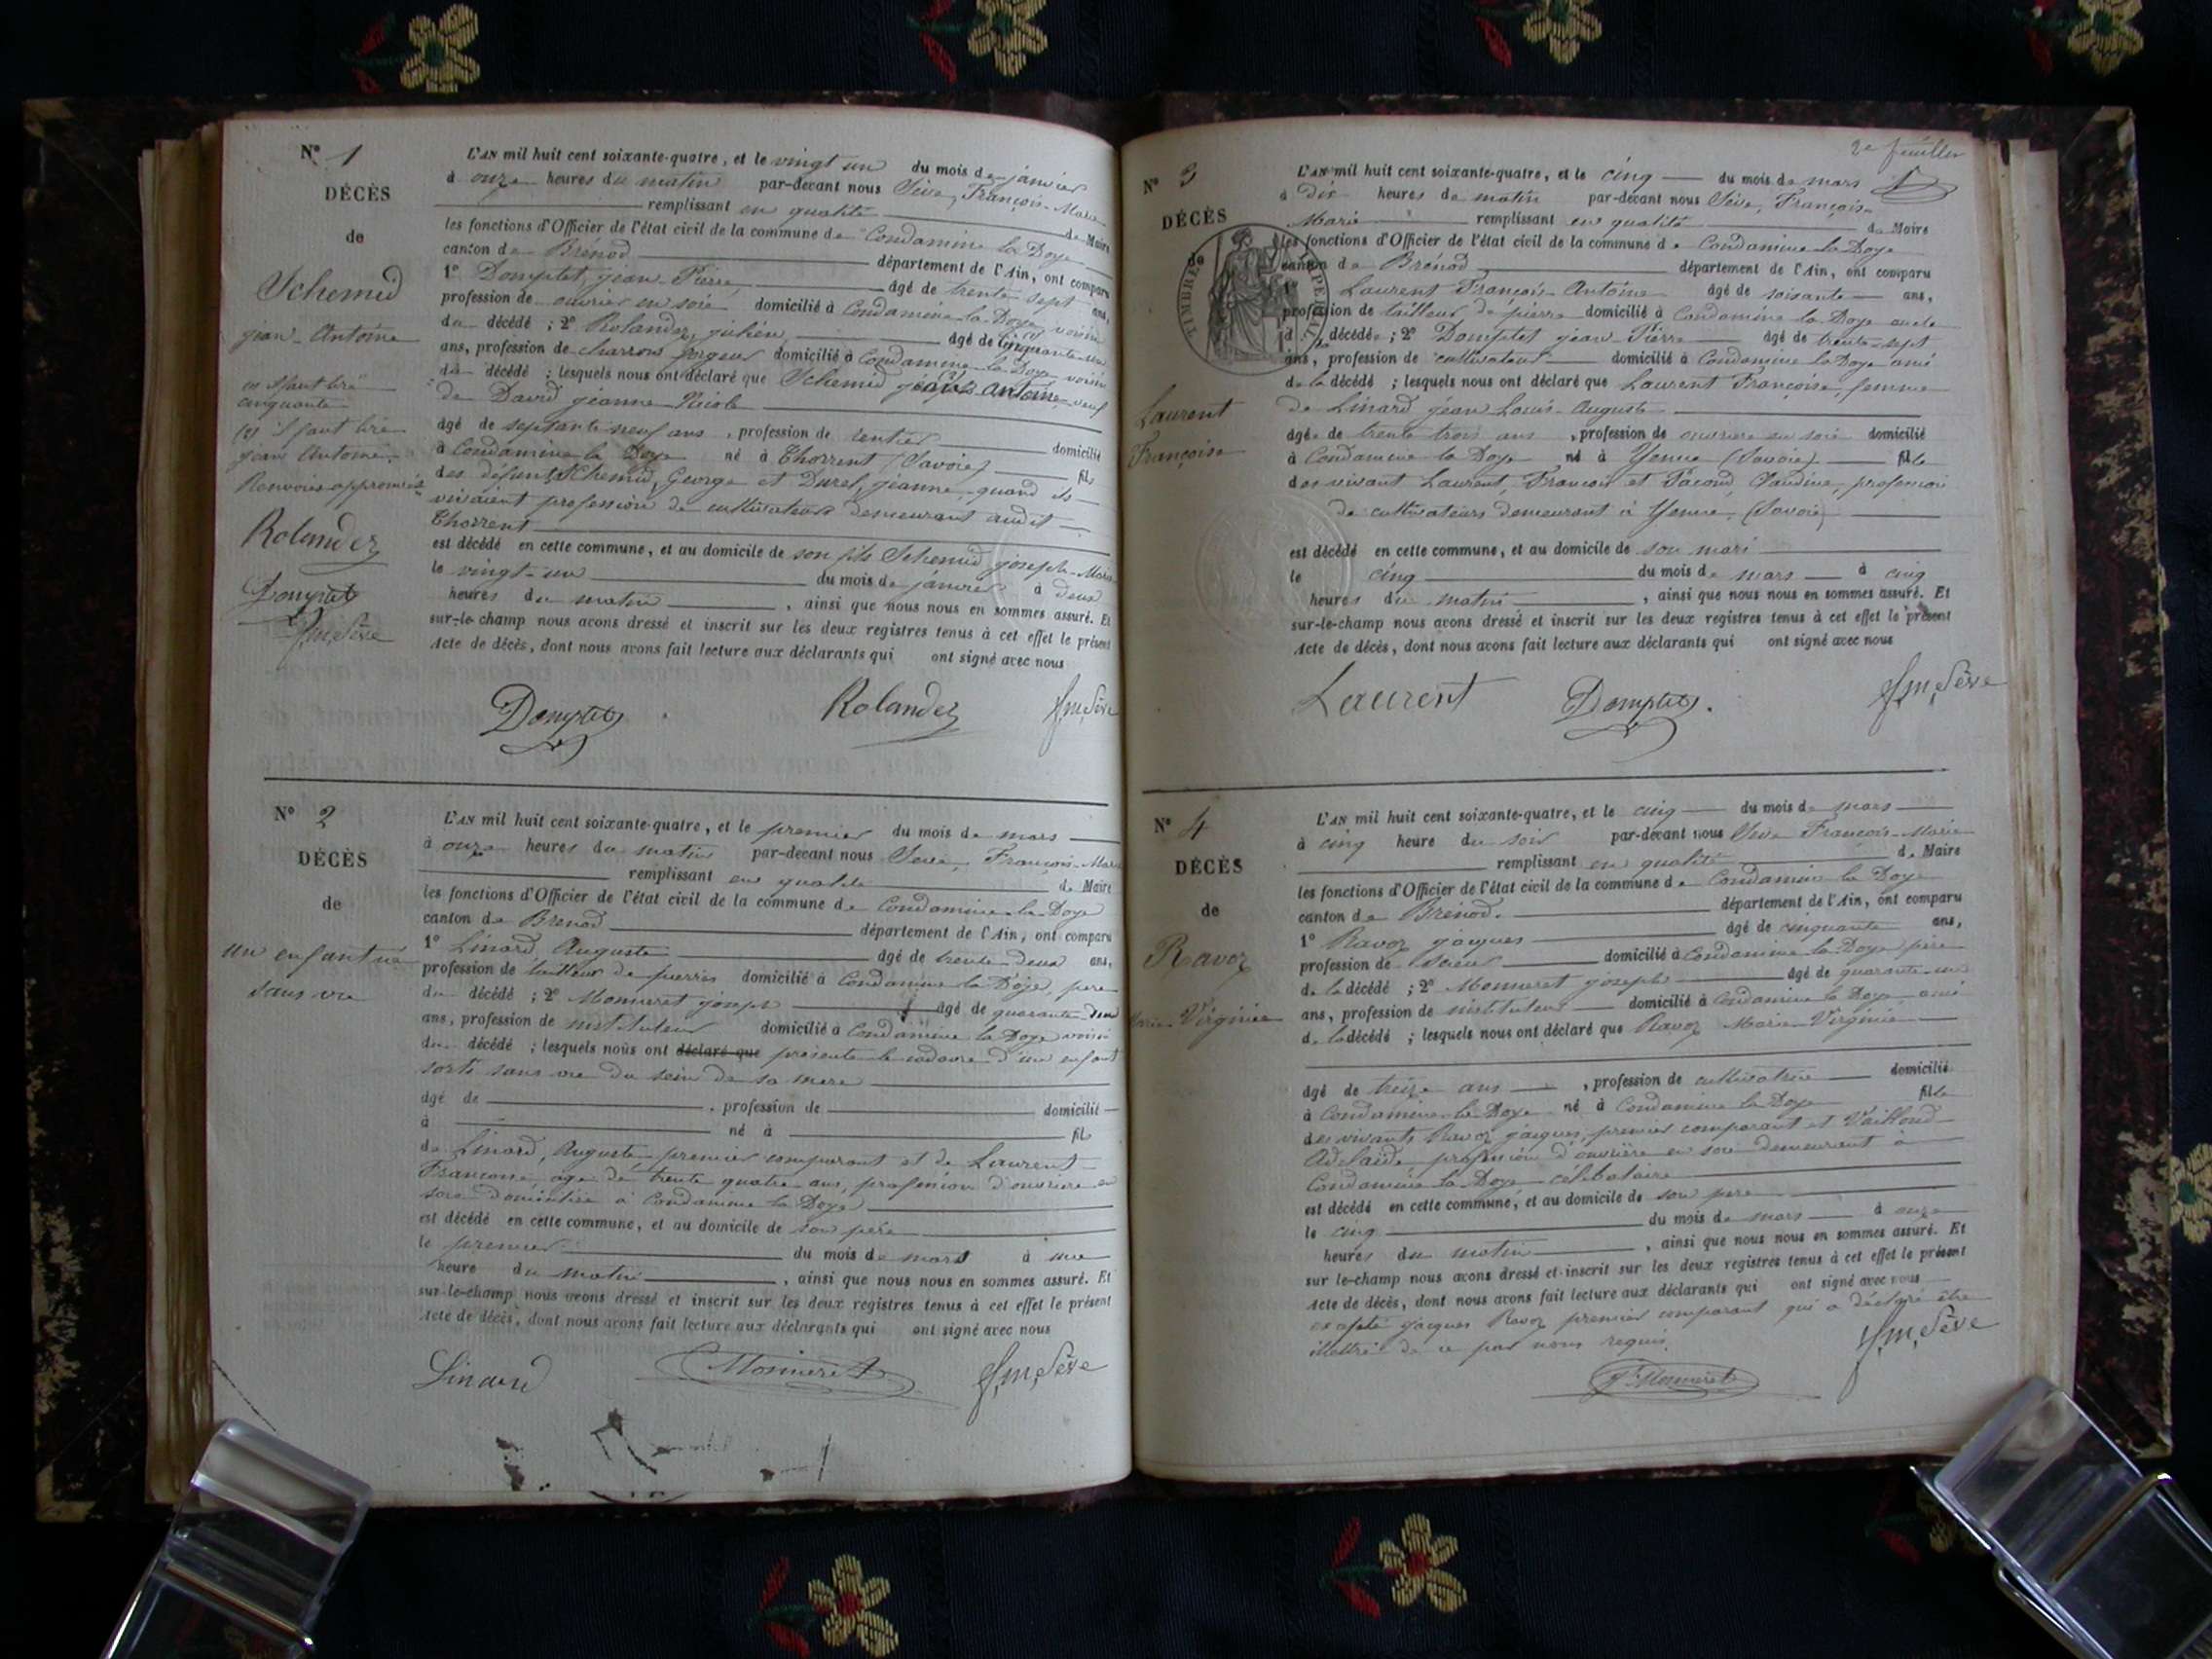 N° 1
DÉCÈS
de
Schemid
jean-Antoine
(1) il faut lire
cinquante
(2) il faut lire
jean Antoine.
Renvois approuvés
Rolandez
Domptet
f,m,Sève
L'AN mil huit cent soixante-quatre, et le vingt un du mois de janvier
à onze heures du matin par-devant nous Sève, François-Marie
remplissant en qualité de Maire
les fonctions d'Officier de l'état civil de la commune de Condamine la Doye
canton de Brénod département de l'Ain, ont comparu
1° Domptet, jean-Pierre âgé de trente-sept ans,
profession de ouvrier en soie domicilié à Condamine-la-Doye voisin
du décédé ; 2° Rolandez, julien âgé de cinquante-un
ans, profession de charron forgeur domicilié à Condamine-la-Doye voisin
du décédé ; lesquels nous ont déclaré que Schemid jean antoine, veuf
de David jeanne Nicole
âgé de septante neuf ans, profession de rentier domicilié
à Condamine la Doye né à Thorrent (Savoie) fils
des défunts Schemid, George et Duret, jeanne, quand ils
vivaient profession de cultivateurs demeurant audit
Thorrent
est décédé en cette commune, et au domicile de son fils Schemid joseph-Marie
le vingt-un du mois de janvier à deux
heures du matin, ainsi que nous nous en sommes assuré. Et
sur-le-champ nous avons dressé et inscrit sur les deux registres tenus à cet effet le présent
Acte de décès, dont nous avons fait lecture aux déclarants qui ont signé avec nous
Domptet Rolandez f,m,Sève
N° 2
DÉCÈS
de
un enfant né
sans vie
L'AN mil huit cent soixante-quatre, et le premier du mois de mars
à onze heures du matin par-devant nous Sève, François-Marie
remplissant en qualité de Maire
les fonctions d'Officier de l'état civil de la commune de Condamine-la-Doye
canton de Brenod département de l'Ain, ont comparu
1° Linard Auguste âgé de trente-deux ans,
profession de tailleur de pierres domicilié à Condamine la Doye, père
du décédé ; 2° Monneret joseph âgé de quarante-deux
ans, profession de instituteur domicilié à Condamine la Doye voisin
du décédé ; lesquels nous ont déclaré que présenté le cadavre d'un enfant
sorti sans vie du sein de sa mère
âgé de , profession de domicilié
à né à fils
de Linard, Auguste premier comparant et de Laurent
Françoise, âgé de trente quatre ans, profession d'ouvrière en
soie domiciliée à Condamine la Doye
est décédé en cette commune, et au domicile de son père
le premier du mois de mars à une
heure du matin, ainsi que nous nous en sommes assuré. Et
sur-le-champ nous avons dressé et inscrit sur les deux registres tenus à cet effet le présent
Acte de décès, dont nous avons fait lecture aux déclarants qui ont signé avec nous
Linard Monneret f,m,Sève
2e feuillet
N° 3
DÉCÈS
de
TIMBRE IMPERIAL
Laurent
Françoise
L'AN mil huit cent soixante-quatre, et le cinq du mois de mars
à dix heures de matin par-devant nous Sève, François-
Marie remplissant en qualité de Maire
les fonctions d'Officier de l'état civil de la commune de Condamine la Doye
canton de Brénod département de l'Ain, ont comparu
1° Laurent François-Antoine âgé de soixante ans,
profession de tailleur de pierre domicilié à Condamine la Doye oncle
d la décédée ; 2° Domptet jean-Pierre âgé de trente-sept
ans, profession de cultivateur domicilié à Condamine la Doye ami
de la décédé ; lesquels nous ont déclaré que Laurent Françoise, femme
de Linard jean Louis-Auguste
âgée de trente trois ans, profession de ouvrière en soie domicilié
à Condamine la Doye né à Yenne (Savoie) fille
des vivant Laurent, François et Pacoud, Claudine, profession
de cultivateurs demeurant à Yenne, (Savoie)
est décédé en cette commune, et au domicile de son mari
le cinq du mois de mars à cinq
heures du matin, ainsi que nous nous en sommes assuré. Et
sur-le-champ nous avons dressé et inscrit sur les deux registres tenus à cet effet le présent
Acte de décès, dont nous avons fait lecture aux déclarants qui ont signé avec nous
Laurent Domptet. f,m,Sève
N° 4
DÉCÈS
de
Ravoz
Marie-Virginie
L'AN mil huit cent soixante-quatre, et le cinq du mois de mars
à cinq heure du soir par-devant nous Sève François-Marie
remplissant en qualité de Maire
les fonctions d'Officier de l'état civil de la commune de Condamine la Doye
canton de Brénod. département de l'Ain, ont comparu
1° Ravoz jacques âgé de cinquante ans,
profession de scieur domicilié à Condamine la Doye père
de la décédé ; 2° Monneret joseph âgé de quarante-un
ans, profession de instituteur domicilié à Condamine la Doye, ami
de la décédé ; lesquels nous ont déclaré que Ravoz Marie-Virginie
âgé de treize ans, profession de cultivatrice domicilié
à Condamine la Doye né à Condamine la Doye fille
des vivants Ravoz jacques, premier comparant et Vailloud
Adélaïde, profession d'ouvrière en soie demeurant à
Condamine la Doye célibataire
est décédé en cette commune, et au domicile de son père
le cinq du mois de mars à onze
heures du matin, ainsi que nous nous en sommes assuré. Et
sur le-champ nous avons dressé et inscrit sur les deux registres tenus à cet effet le présent
Acte de décès, dont nous avons fait lecture aux déclarants qui ont signé avec nous
excepté jacques Ravoz premier comparant qui a déclaré être
illettré de ce par nous requis.
Monneret f,m,Sève